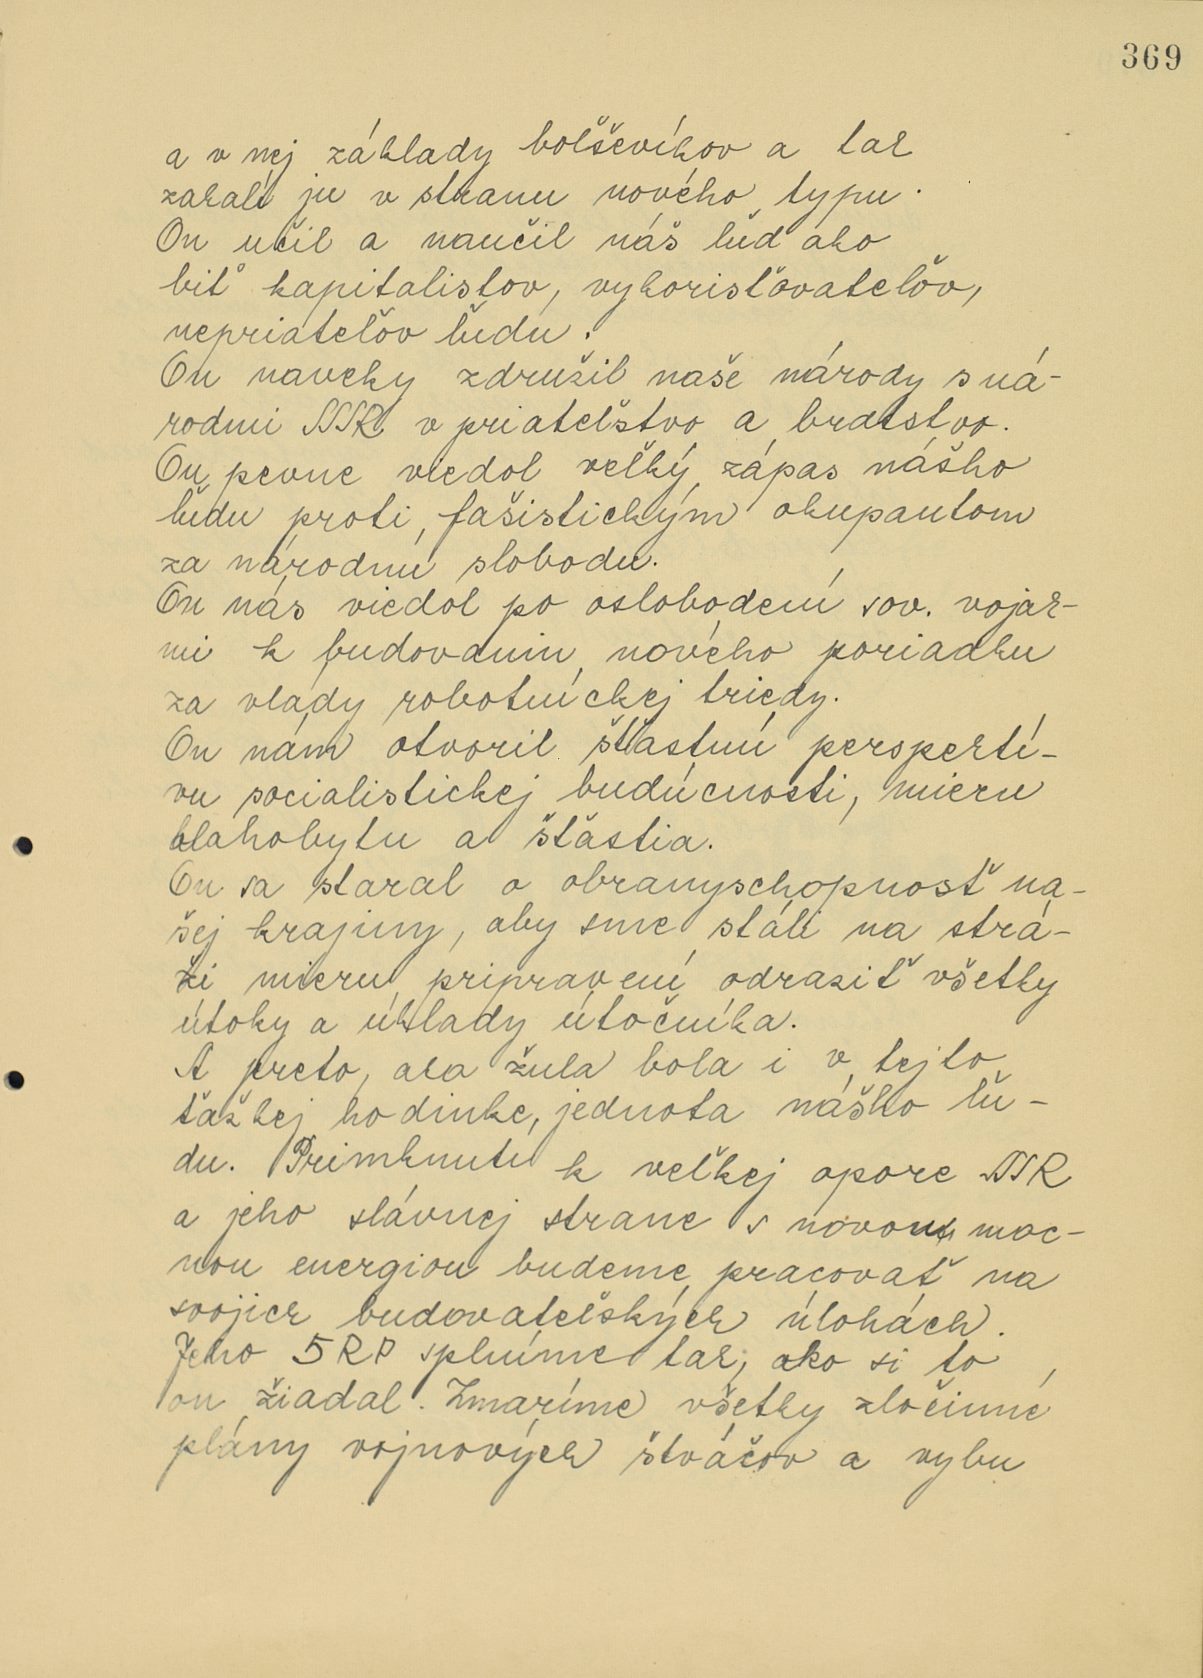 369
a v nej základy bolševíkov a tak
zakalil ju v stranu nového typu.
On učil a naučil náš ľud ako
biť kapitalistov, vykorisťovateľov,
nepriateľov ľudu.
On naveky združil naše národy s ná-
rodmi SSSR v priateľstvo a bratstvo.
On pevne viedol veľký zápas nášho
ľudu proti fašistickým okupantom
za národnú slobodu.
On nás viedol po oslobodení sov. vojak-
mi k budovaniu nového poriadku
za vlády robotníckej triedy.
On nám otvoril šťastnú perspektí-
vu socialistickej budúcnosti, mieru
blahobytu a šťastia.
On sa staral o obranyschopnosť na-
šej krajiny, aby sme stáli na strá-
ži mieru pripravení odraziť všetky
útoky a úklady útočníka.
A preto, ako žula bola i v tejto
ťažkej hodinke, jednota nášho ľu-
du. Primknutí k veľkej opore SSSR
a jeho slávnej strane s novou moc-
nou energiou budeme pracovať na
svojich budovateľských úlohách.
Jeho 5RP splníme tak, ako si to
on žiadal. Zmaríme všetky zločinné
plány vojnových štváčov a vybu